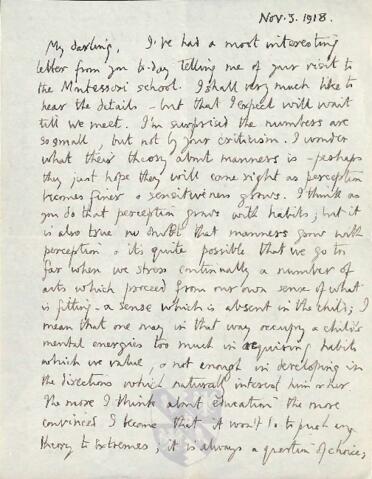 Nov. 3. 1918.
My darling, I've had a most interesting
letter from you to-day telling me of your visit to
the Montessori school. I shall very much like to
hear the details – but that I expect will want
till we meet. I'm surprised the numbers are
so small, but not by your criticism. I wonder
what their theory about manners is – perhaps
they just hope they will come right as perception
becomes finer & sensitiveness grows. I think as
you do that perception grows with habits; but it
is also true no doubt that manners grow with
perception & it's quite possible that we go to
far when we stress continually a number of
acts which proceed from our own sense of what
is fitting – a sense which is absent in the child; I
mean that one may in that way occupy a child's
mental energies too much in acquiring habits
which we value, & not enough in developing in
the directions which natural interest him or her
The more I think about education the more
convinced I become that it won't do to push any
theory to extremes; it is always a question of choice,